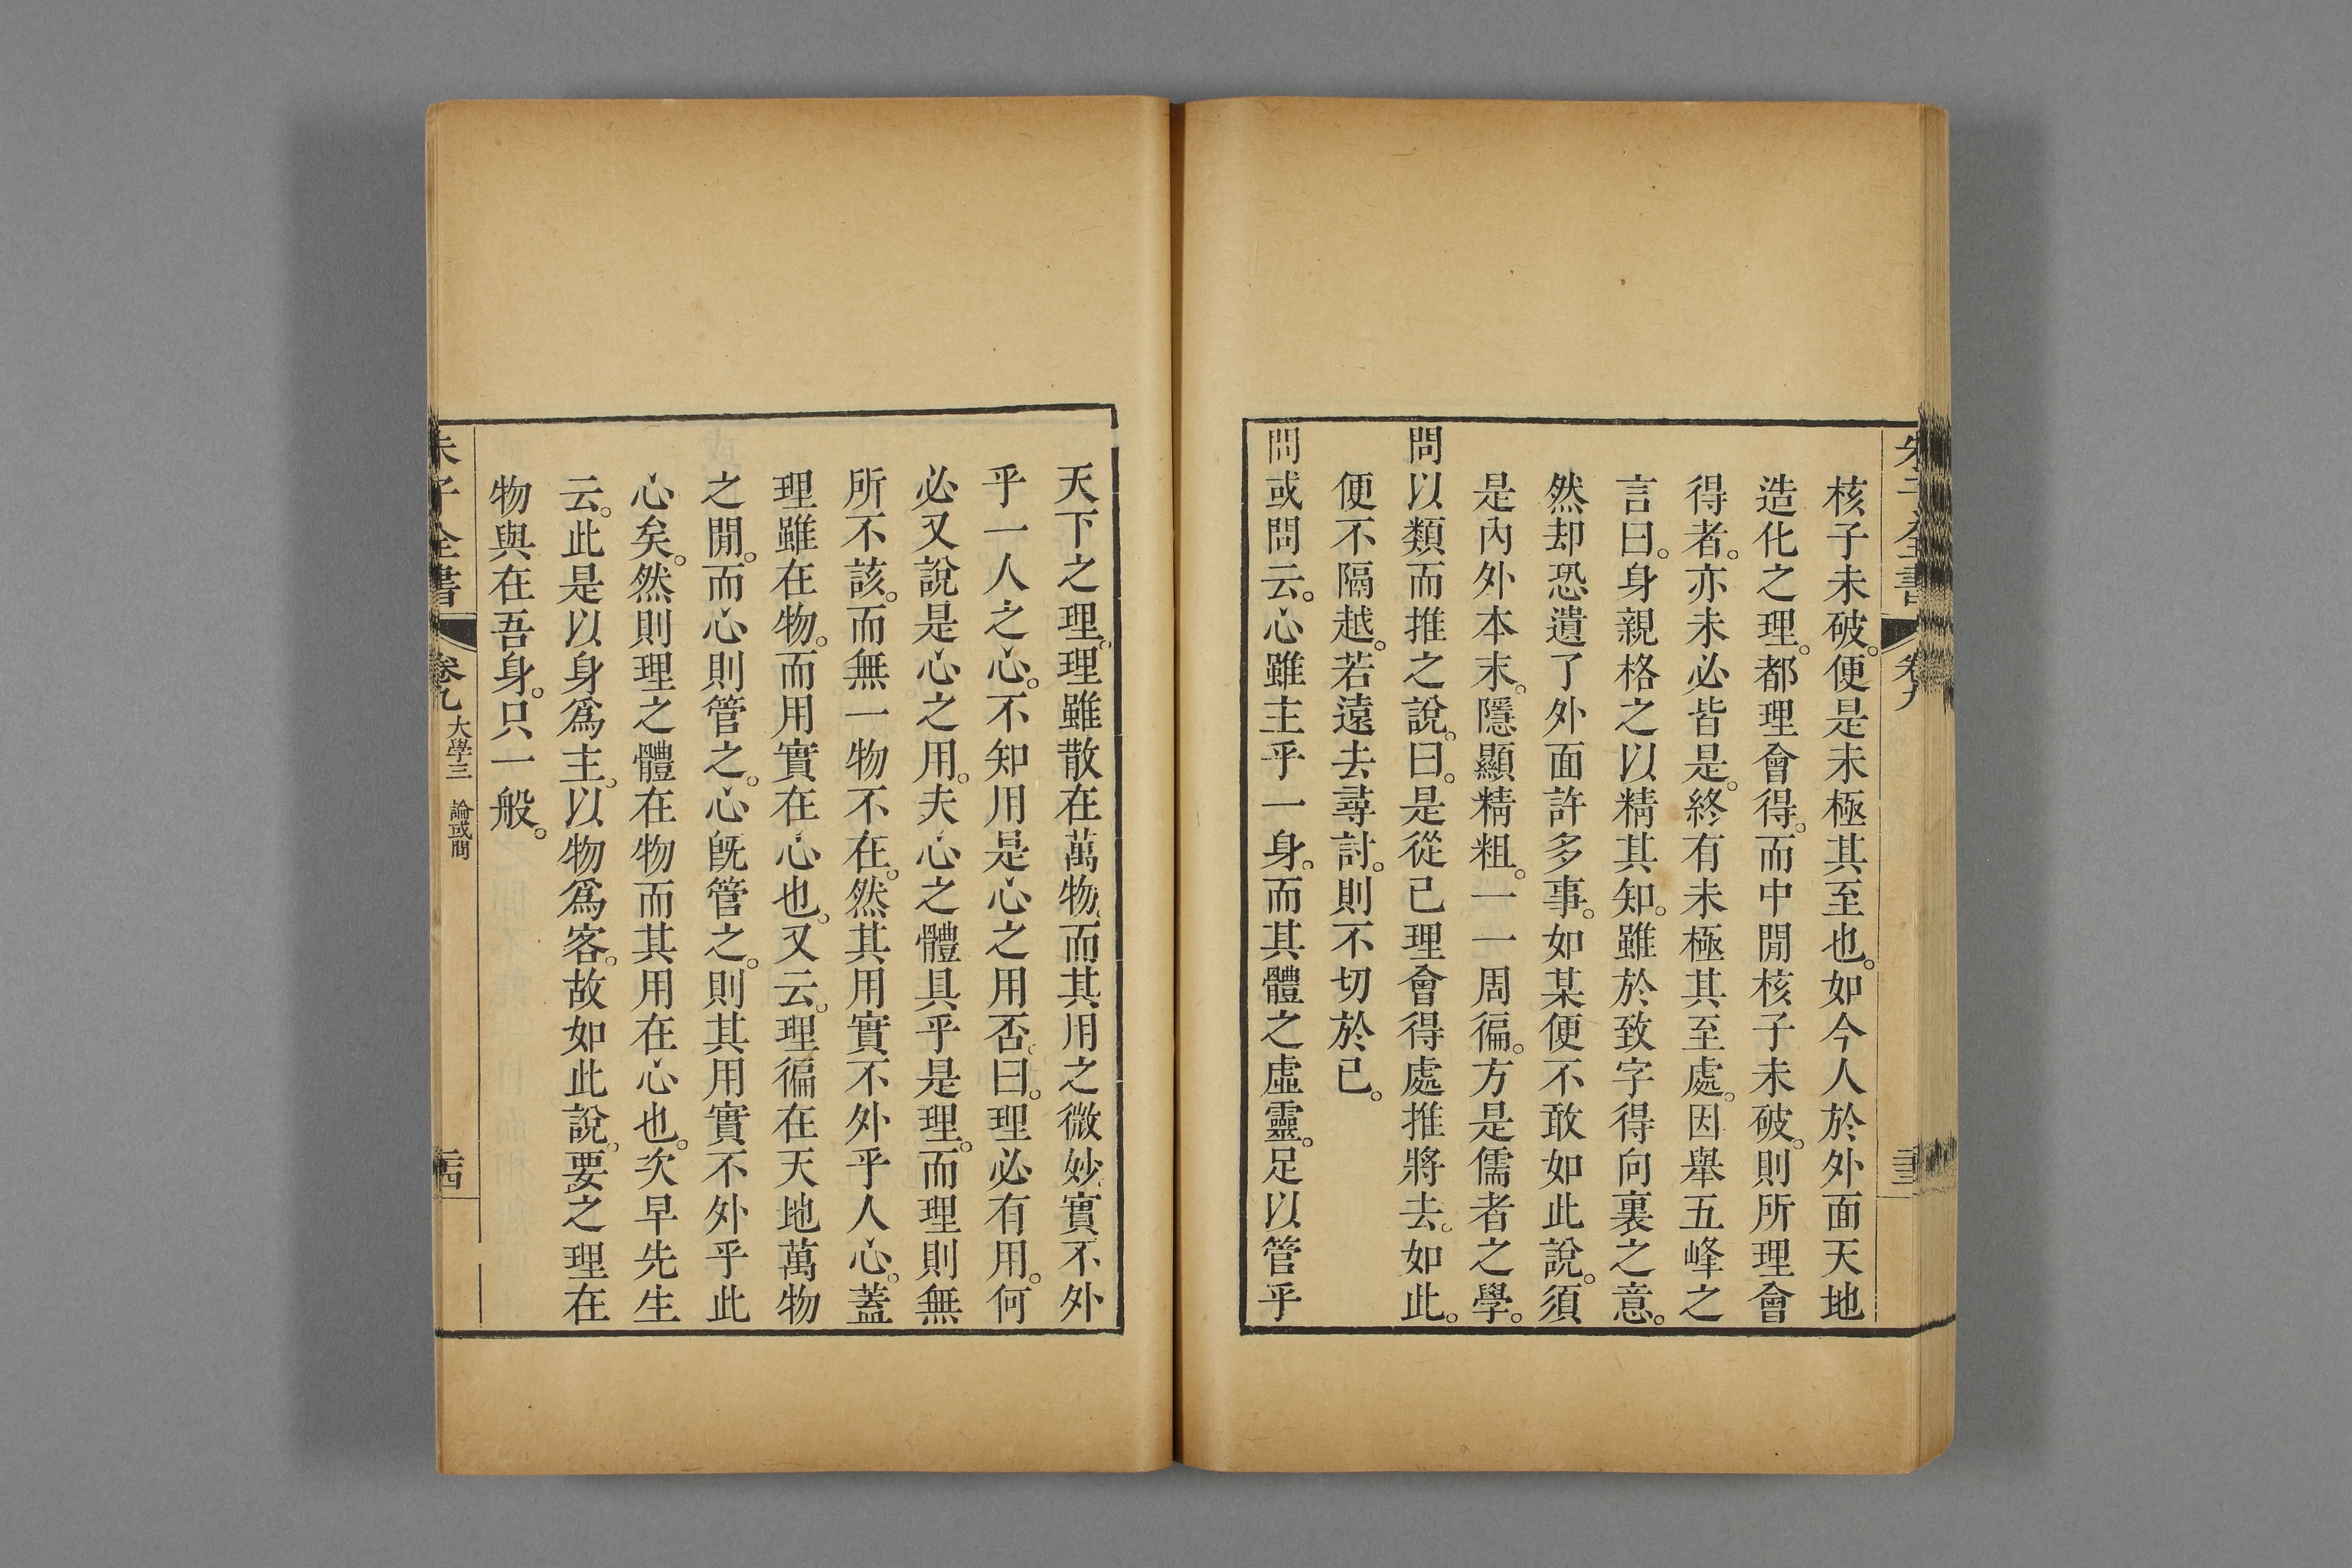 朱子全書 卷九 三
核子未破。便是未極其至也。如今人於外面天地
造化之理。都理會得。而中閒核子未破。則所理會
得者。亦未必皆是。終有未極其至處。因舉五峰之
言曰。身親格之以精其知。雖於致字得向裏之意。
然却恐遺了外面許多事。如某便不敢如此說。須
是內外本末。隱顯精粗。一一周徧。方是儒者之學。
問以類而推之說。曰。是從己理會得處推將去。如此。
便不隔越。若遠去尋討。則不切於己。
問或問云。心雖主乎一身。而其體之虛靈。足以管乎
天下之理。理雖散在萬物。而其用之微妙。實不外
乎一人之心。不知用是心之用否。曰。理必有用。何
必又說是心之用。夫心之體具乎是理。而理則無
所不該。而無一物不在。然其用實不外乎人心。蓋
理雖在物。而用實在心也。又云。理徧在天地萬物
之閒。而心則管之。心旣管之。則其用實不外乎此
心矣。然則理之體在物而其用在心也。次早先生
云。此是以身爲主。以物爲客。故如此說。要之理在
物與在吾身。只一般。
朱子全書 卷九 大學三 論或問 二四